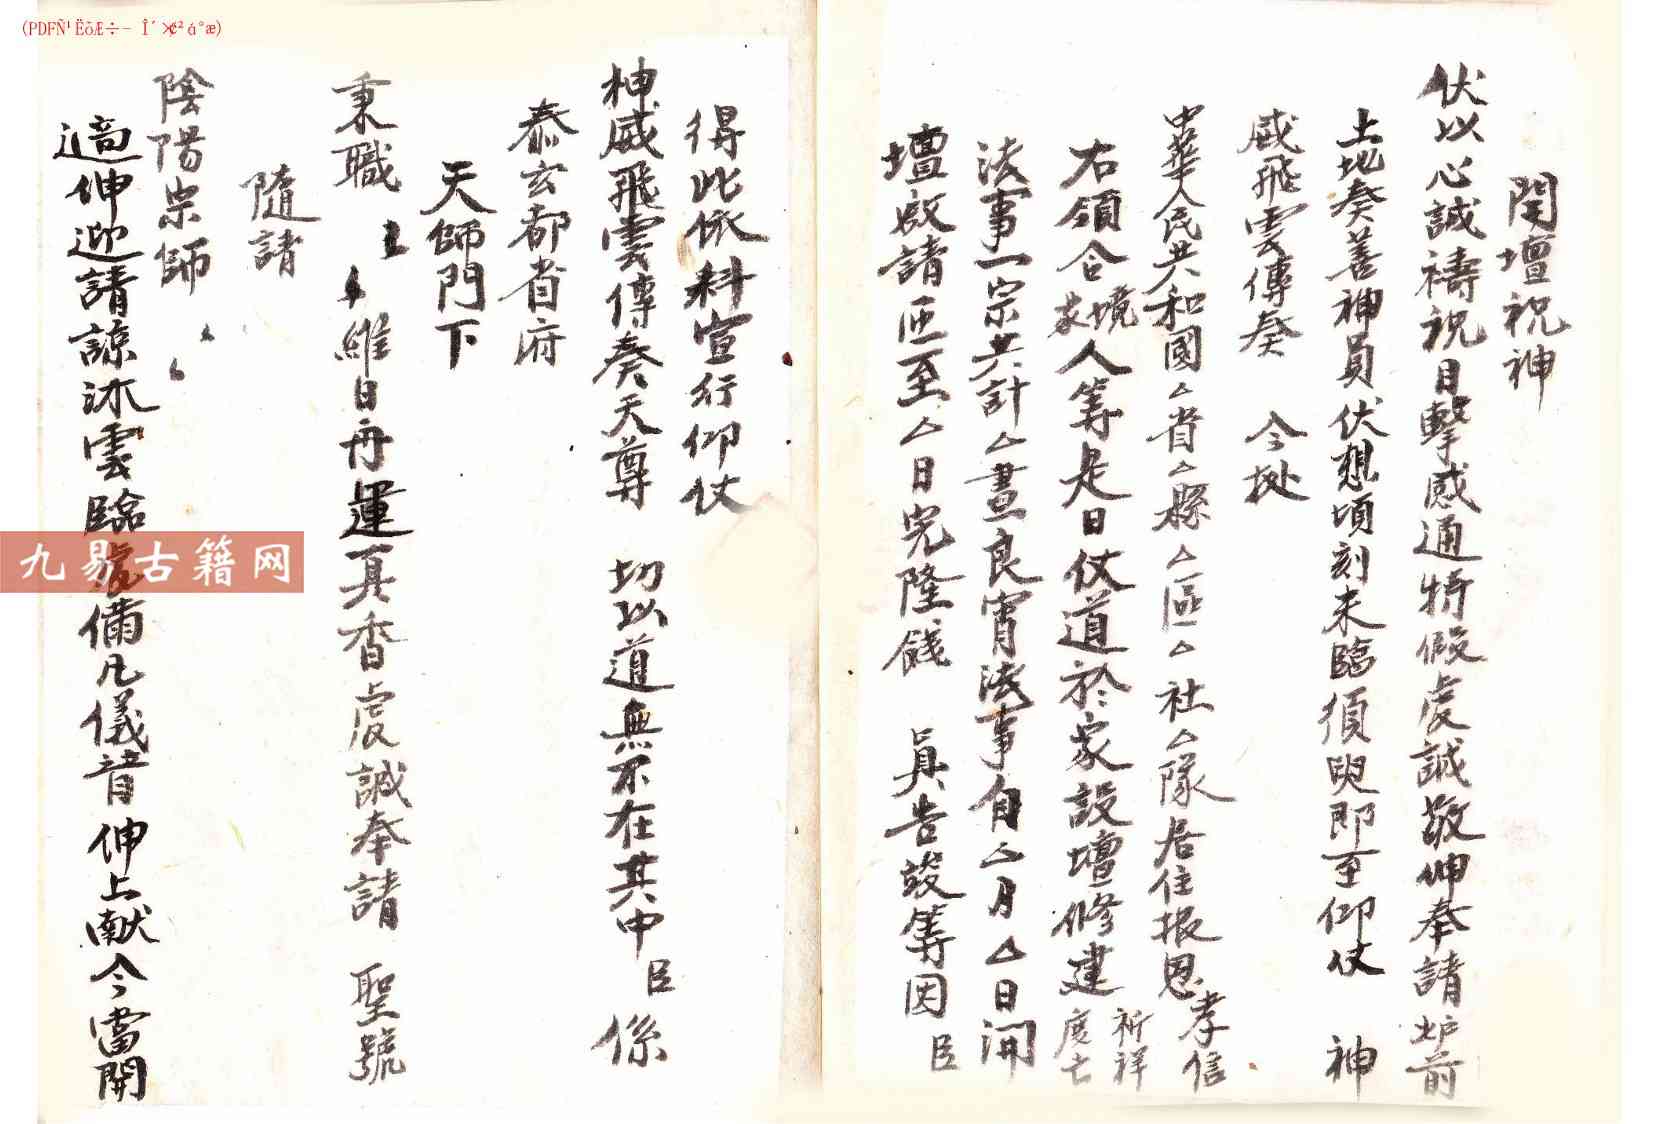 開壇祝神
伏以心誠禱祝目擊感通特假虔誠敬伸奉請炉前
土地奏善神員伏想頃刻未臨須臾即至仰仗 神
威飛雲傳奏 今据
中華人民共和國厶省厶縣厶區厶社厶隊居住报恩孝信
右領合境家人等是日仗道於家設壇修建祈祥度亡
法事一宗共計厶晝良宵法事自厶月厶日開
壇啟請匝至厶日完隆餞 具告竣等因臣
得此依科宣行仰仗
神威飛雲傳奏天尊 切以道無不在其中臣係
泰玄都省府
天師門下
秉職 維日再運真香虔誠奉請 聖號
隨請
陰陽宗師
適伸迎請諒沐雲臨備凡儀音伸上献今當開
九易古籍网
(PDFÑ¹ËõÆ÷- Î´×¢²á°æ)